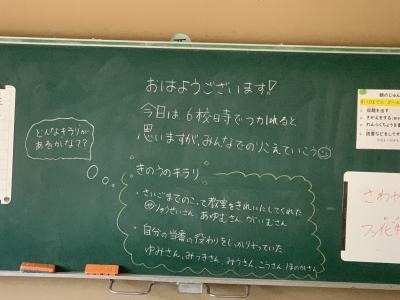 おはようございます!
今日は6校時でつかれると
思いますが、みんなでのりこえていこう
どんなキラリが
あるかなぁ?
きのうのキラリ
・さいごまでのこって教室をきれいにしてくれた
りゅうせいさん あゆむさん、がいむさん
・自分の当番の役わりをしっかりやっていた
ゆみさん、みつきさん、みうさん、こうさん ほのかさん
朝のじゅん
さわや